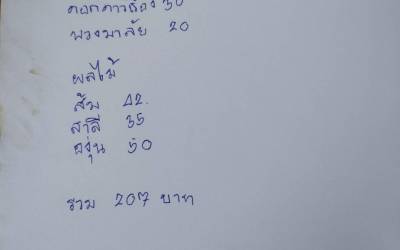 ดอกดาวเรือง 30
พวงมาลัย 20
ผลไม้
ส้ม 42.
สาลี่ 35
องุ่น 50
รวม 207 บาท